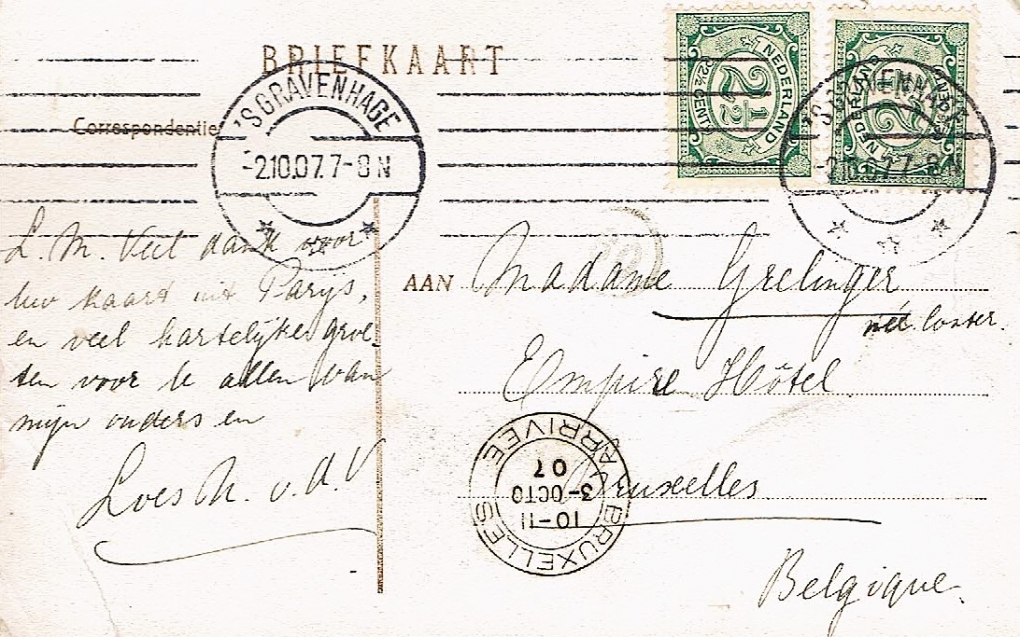 BRIEFKAART
Correspondentie
'S GRAVENHAGE
-2.10.07. 7-8 N
NEDERLAND
2½
2½ CENT
'S GRAVENHAGE
-2.10.07. 7-8 N
NEDERLAND
2½
L. M. Veel dank voor
uw kaart uit Parys,
en veel hartelijke groe
ten voor U allen van
mijn ouders en
Loes M. v. d. V
AAN Madame Grelinger
née
Empire Hôtel
Bruxelles
Belgique.
BRUXELLES
10-11
3-OCTO
07
ARRIVEE